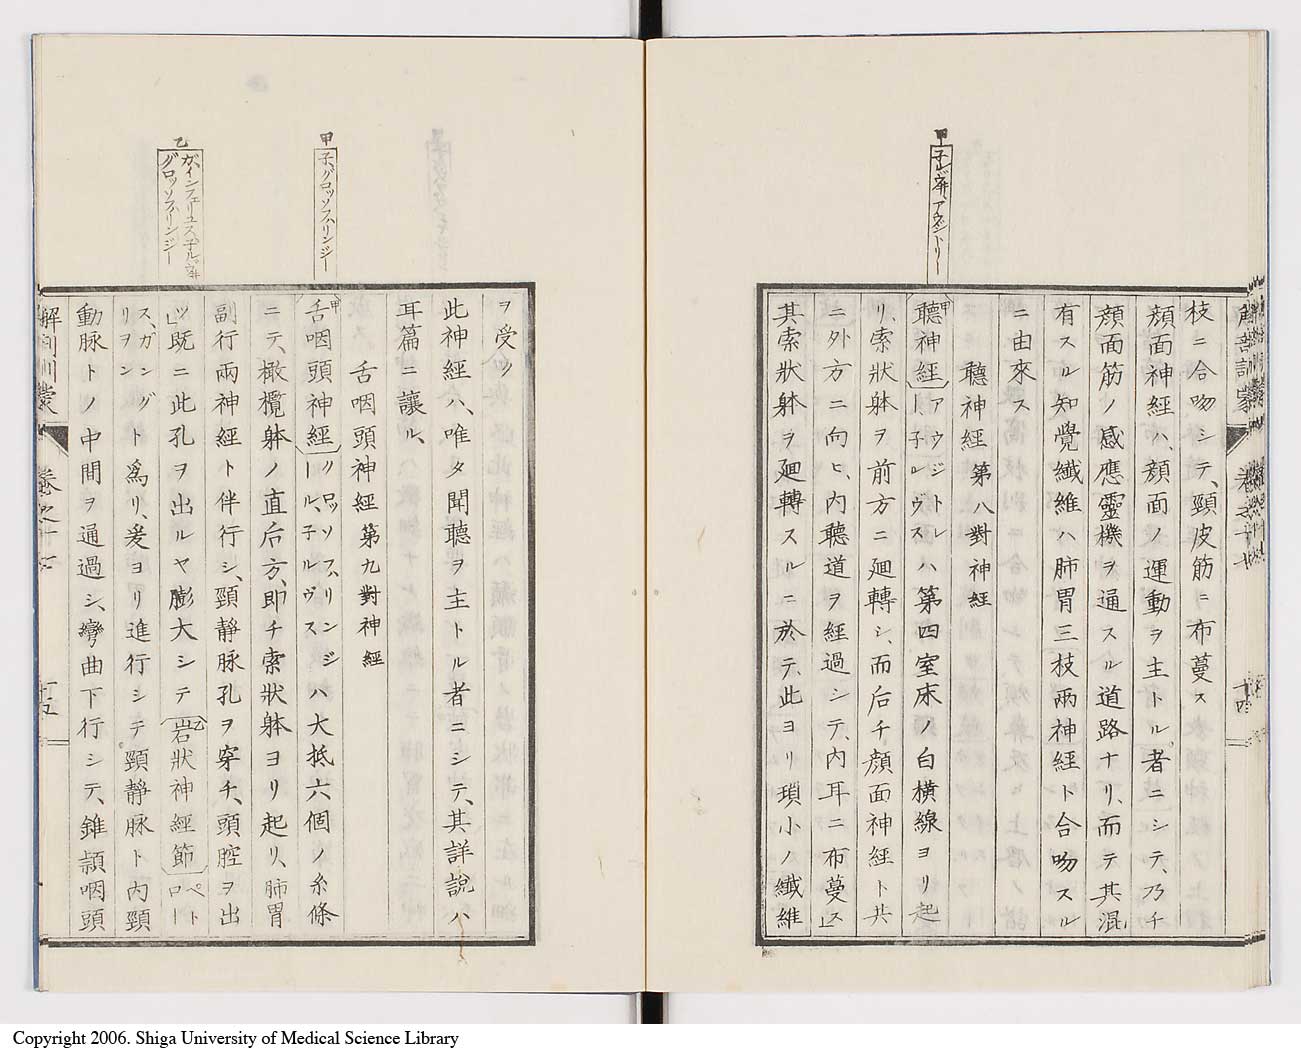 甲
枝ニ合吻シテ、頸皮筋ニ布蔓ス
顔面神経ハ、顔面ノ運動ヲ主トル者ニシテ、乃チ
顔面筋ノ感應靈機ヲ通スル道路ナリ、而テ其混
有スル知覺纖維ハ肺胃三枝兩神経ト合吻スル
ニ由來ス
聽神経 第八對神経
甲聽神経アウジトレー、子ルヴスハ第四室床白横線ヨリ起
リ、索狀躰ヲ前方ニ廻轉シ、而后チ顔面神経ト共
ニ外方ニ向ヒ、内聽道ヲ經過シテ、内耳ニ布蔓ス」
其索狀躰ヲ廻轉スルニ於テ、此ヨリ瑣小ノ纖維
解剖訓蒙
巻之十七
十四
甲
子、グロッソスハリンジー
乙
グロッソスハリンジー
ヲ受ク
此神経ハ、唯タ聞聽ヲ主トル者ニシテ、其詳説ハ
耳篇ニ讓ル、
舌咽頭神経 第九對神経
甲舌咽頭神経グロッソスハリンジール、子ルヴスハ大抵六個ノ糸條
ニテ、橄欖躰ノ直后方、即チ索狀躰ヨリ起リ、肺胃
副行兩神経ト伴行シ、頸靜脉孔ヲ穿チ、頭腔ヲ出
ツ」既ニ此孔ヲ出ルヤ膨大シテ乙岩狀神経節ペトロー
スガングリヲントᅠ爲リ、爰ヨリ進行シテ頸靜脉ト内頸
動脉トノ中間ヲ通過シ、彎曲下行シテ、錐頷咽頭
解剖訓蒙
巻之十七
十五
Copyright 2006. Shiga University of Medical Science Library